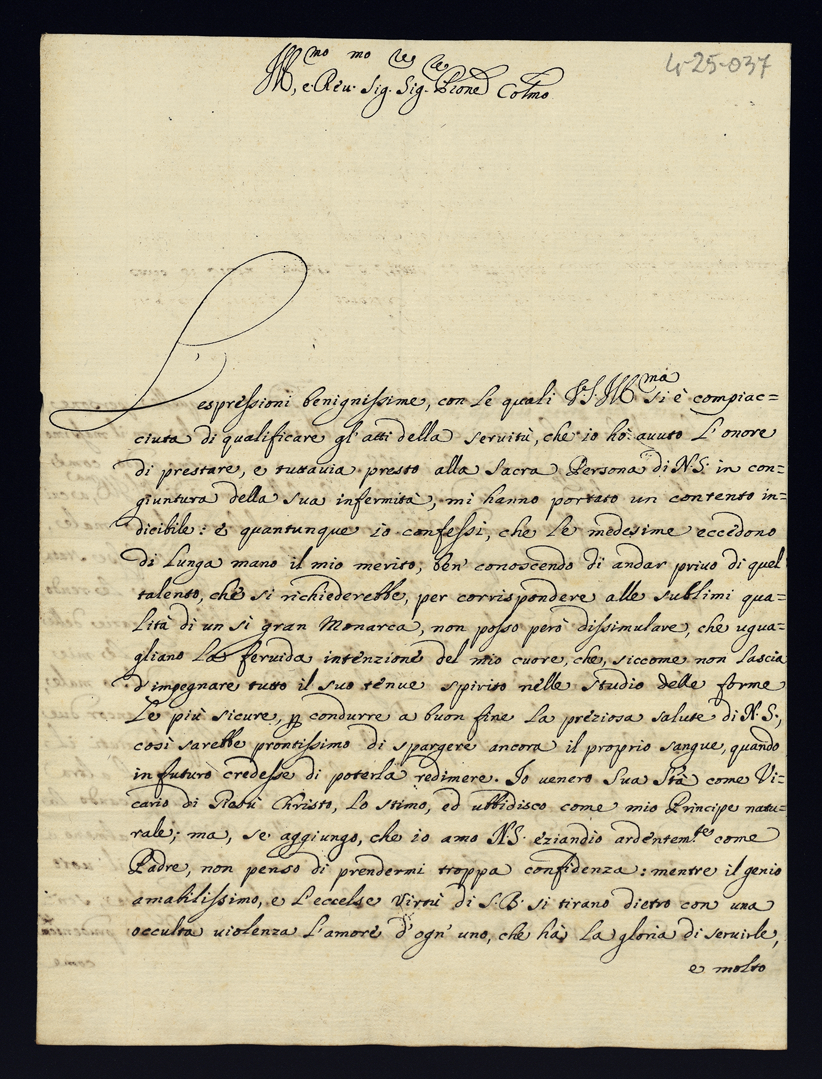 4-25-037
Ill.mo, e Reu.mo Sig.re Sig.re Prone Colmo
L'espressioni benignissime, con le quali V.S. Ill.ma si è compiac=
ciuta di qualificare gl'atti della seruitù, che io hò auuto l'onore
di prestare, e tuttauia presto alla Sacra Persona di N.S. in con=
giuntura della sua infermità, mi hanno portato un contento in=
dicibile: e quantunque io confessi, che le medesime eccedono
di lunga mano il mio merito, ben' conoscendo di andar priuo di quel
talento, che si richiederebbe, per corrispondere alle sublimi qua=
lità di un si gran Monarca, non posso però dissimulare, che ugua=
gliano la feruida intenzione del mio cuore, che, siccome non lascia
d'impegnare tutto il suo tenue spirito nello studio delle forme
le più sicure, p condurre a buon fine la preziosa salute di N.S.,
così sarebbe prontissimo di spargere ancora il proprio sangue, quando
in futuro credesse di poterla redimere. Io venero Sua Stà come Vi=
cario di Giesù Christo, lo stimo, ed ubbidisco come mio Principe natu=
rale; ma, se aggiungo, che io amo N.S. eziandio ardentem.te come
Padre, non penso di prendermi troppa confidenza: mentre il genio
amabilissimo, e l'eccelse virtù di S.B. si tirano dietro con una
occulta uiolenza l'amore d'ogn' uno, che hà la gloria di seruirle,
e molto